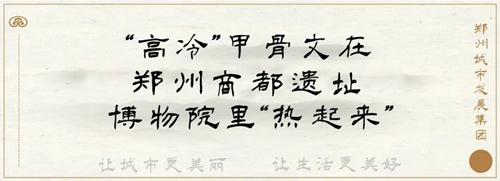 “高冷”甲骨文在
郑州商都遗址
博物院里“热起来”
让城市更美丽 让生活更美好
郑州城市发展集团